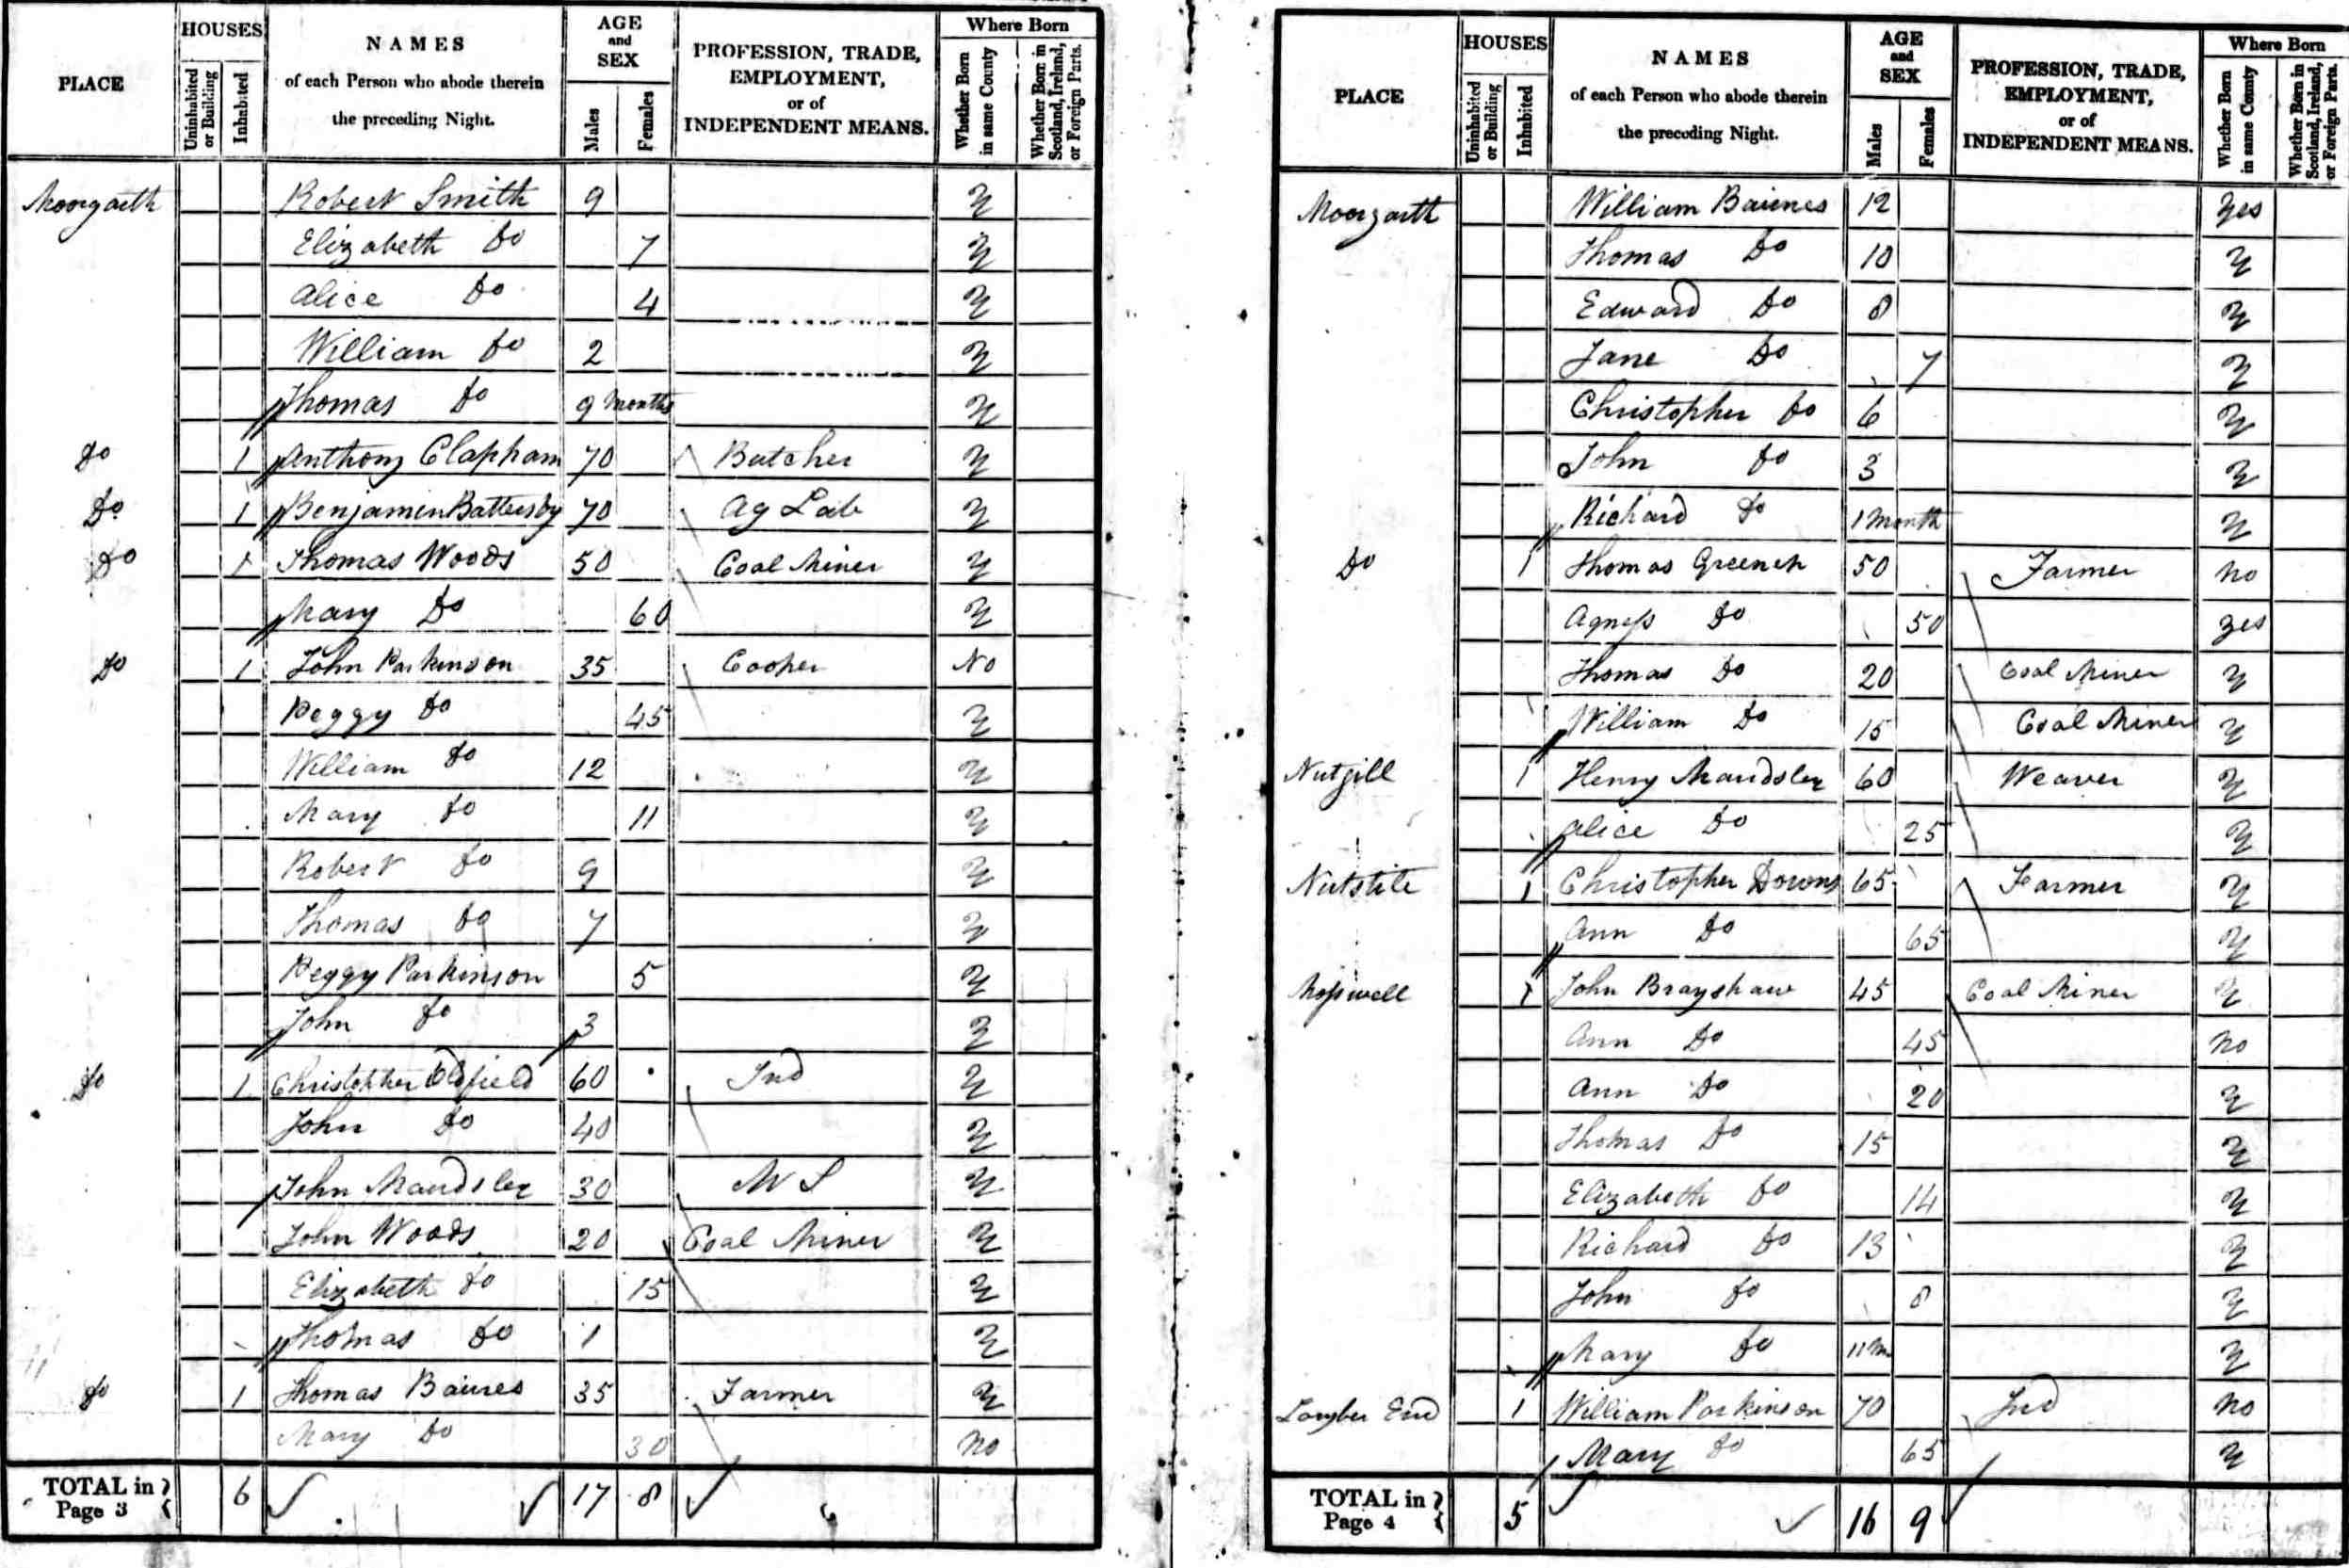 PLACE HOUSES Uninhabited or Building Inhabited NAMES of each Person who abode therein the preceding Night. AGE and SEX Males Females PROFESSION, TRADE, EMPLOYMENT, or of INDEPENDENT MEANS. Where Born Whether Born in same County Whether Born in Scotland, Ireland, or Foreign Parts.
Moorgarth Robert Smith 9 Y
Elizabeth Do 7 Y
Alice Do 4 Y
William Do 2 Y
Thomas Do 9 Months Y
Do 1 Anthony Clapham 70 Butcher Y
Do 1 Benjamin Battersby 70 Ag Lab Y
Do 1 Thomas Woods 50 Coal Miner Y
Mary Do 60 Y
Do 1 John Parkinson 35 Cooper No
Peggy Do 45 Y
William Do 12 Y
Mary Do 11 Y
Robert Do 9 Y
Thomas Do 7 Y
Peggy Parkinson 5 Y
John Do 3 Y
Do 1 Christopher Oldfield 60 Ind Y
John Do 40 Y
John Mandsley 30 M S Y
John Woods 20 Coal Miner Y
Elizabeth Do 15 Y
Thomas Do 1 Y
Do 1 Thomas Baines 35 Farmer Y
Mary Do 30 No
TOTAL in Page 3 6 17 8
PLACE HOUSES Uninhabited or Building Inhabited NAMES of each Person who abode therein the preceding Night. AGE and SEX Males Females PROFESSION, TRADE, EMPLOYMENT, or of INDEPENDENT MEANS. Where Born Whether Born in same County Whether Born in Scotland, Ireland, or Foreign Parts.
Moorgarth William Baines 12 Yes
Thomas Do 10 Y
Edward Do 8 Y
Jane Do 7 Y
Christopher Do 6 Y
John Do 3 Y
Richard Do 1 Month Y
Do 1 Thomas Greenep 50 Farmer No
Agness Do 50 Yes
Thomas Do 20 Coal Miner Y
William Do 15 Coal Miner Y
Nutgill 1 Henry Mandsley 60 Weaver Y
Alice Do 25 Y
Nutstile 1 Christopher Downs 65 Farmer Y
Ann Do 65 Y
Mosswell 1 John Brayshaw 45 Coal Miner Y
Ann Do 45 No
Ann Do 20 Y
Thomas Do 15 Y
Elizabeth Do 14 Y
Richard Do 13 Y
John Do 8 Y
Mary Do 11 M Y
End 1 William Parkinson 70 Ind No
Mary Do 65 Y
TOTAL in Page 4 5 16 9